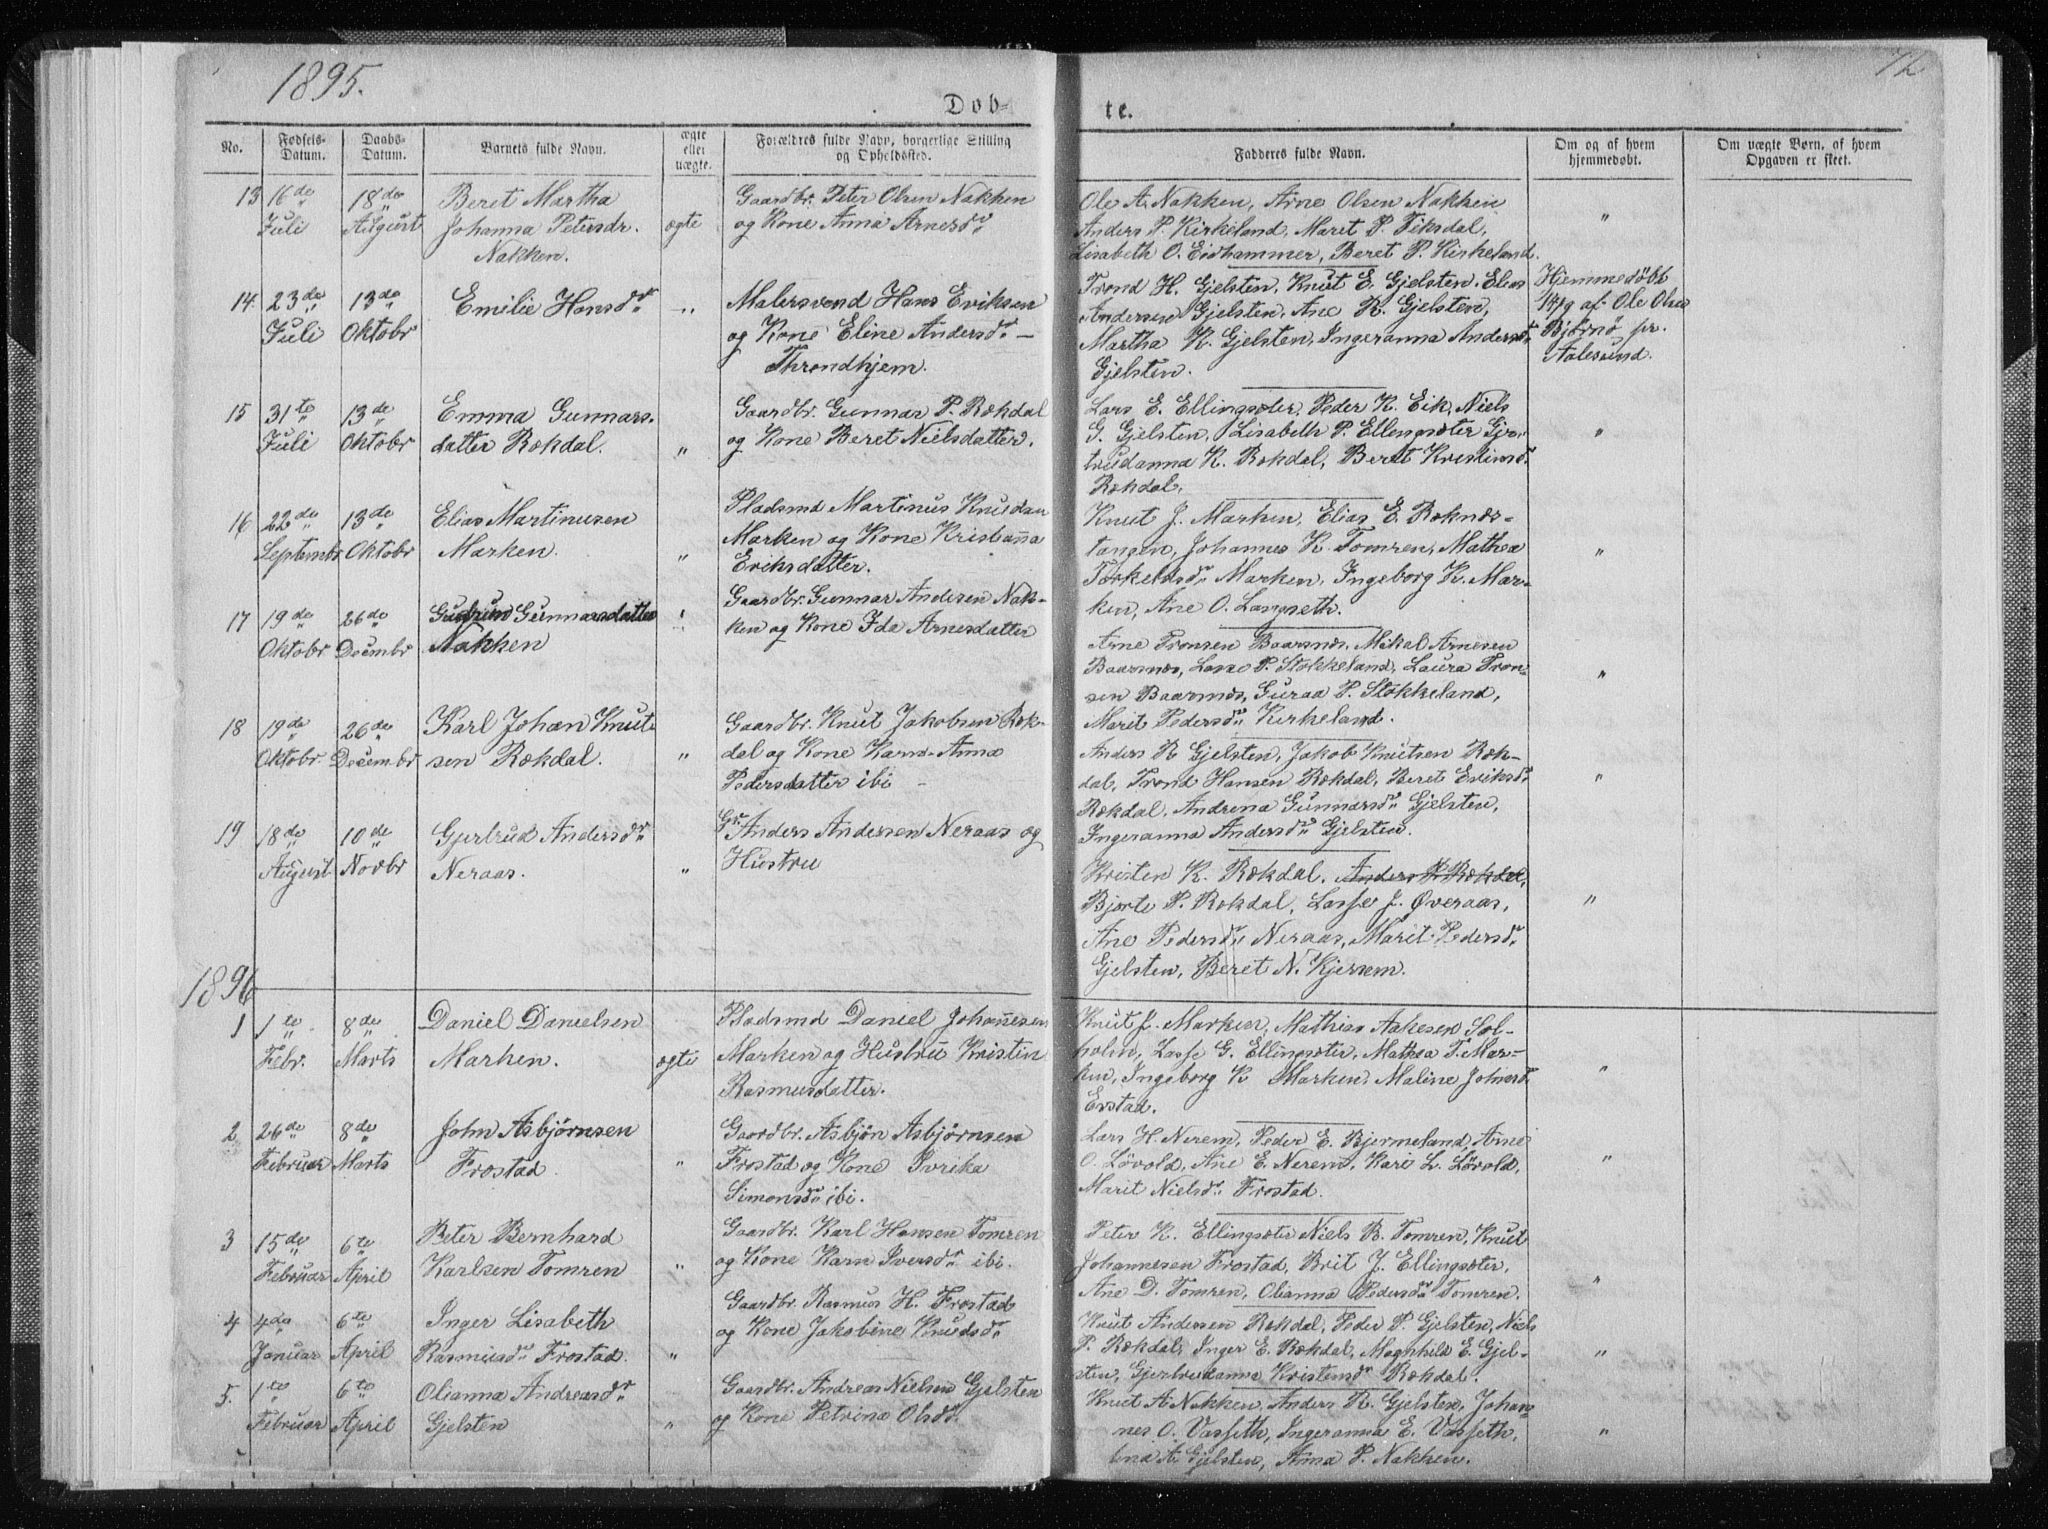 1895.
72
Døb-
te.
No.
Fødsels-
Datum.
Daabs-
Datum.
Barnets fulde Navn.
ægte
eller
uægte.
Forældres fulde Navn, borgerlige Stilling
og Opholdssted.
Fadderes fulde Navn.
Om og af hvem
hjemmedøbt.
Om uægte Børn, af hvem
Opgaven er skeet.
13 16de Juli
18de August
Beret Martha
Johanna Petersdr.
Nakken.
ægte
Gaardbr. Peter Olsen Nakken
og Kone Anna Arnesdr
Ole A. Nakken, Arne Olsen Nakken
Anders P. Kirkeland, Maret P. Fiksdal,
Lisabeth O. Eidhammer, Beret P. Kirkeland.
"
14. 23de Juli
13de Oktobr
Emilie Hansdr
"
Malersvend Hans Eriksen
og Kone Eline Andersdr —
Throndhjem.
Trond H. Gjelsten, Knut E. Gjelsten, Elias
Andersen Gjelsten, Ane R. Gjelsten,
Martha K. Gjelsten, Ingeranna Andersdr
Gjelsten.
Hjemmedöbt
14/9 af Ole Olsen
Björnö pr.
Aalesund.
15 31te Juli
13de Oktobr
Emma Gunnars-
datter Rökdal.
"
Gaardbr. Gunnar P. Rökdal
og Kone Beret Nielsdatter.
Lars E. Ellingsæter, Peder K. Eik, Niels
G. Gjelsten, Lisabeth P. Ellingsæter Gjr-
trudanna K. Rökdal, Beret Kristensdr
Rökdal.
"
16 22de Septembr
13de Oktobr
Elias Martinusen
Marken.
"
Pladsmd Martinus Knudsen
Marken og Kone Kristianna
Eriksdatter.
Knut J. Marken, Elias E. Röknes-
tangen, Johannes K. Tomren, Mathea
Torkelsdr Marken, Ingeborg K. Mar-
ken, Ane O. Langseth.
"
17 19de Oktobr
26de Decembr
Gudrun Gunnarsdatter
Nakken
"
Gaardbr. Gunnar Andersen Nak-
ken og Kone Ida Arnesdatter
Arne Tronsen Baarsnes, Mikal Arnesen
Baarsnes, Lasse P. Stokkeland, Laura Tron-
sen Baarsnes, Guraa P. Stokkeland,
Marit Pedersdr Kirkeland.
"
18 19de Oktobr
26de Decembr
Karl Johan Knut-
sen Rökdal.
"
Gaardbr. Knut Jakobsen Rök-
dal og Kone Karn-Anna
Pedersdatter ibi —
Anders R Gjelsten, Jakob Knutsen Rök-
dal, Trond Hansen Rökdal, Beret Eriksdr
Rökdal, Andrena Gunnarsdr Gjelsten,
Ingeranna Andersdr Gjelsten.
"
19 18de August
10de Novbr
Gjertrud Andersdr
Neraas.
"
Gr Anders Andersen Neraas og
Hustru
Kristen K. Rökdal, Anders K Rökdal,
Bjorte P. Rökdal, Lasse J. Øveraas,
Ane Pedersdr Neraas, Marit Pedersdr
Gjelsten, Beret N. Kjersem.
"
1896
1 1te Febr.
8de Marts
Daniel Danielsen
Marken.
ægte
Pladsmd Daniel Johannesen
Marken og Hustru Kristin
Rasmusdatter.
Knut J. Marken, Mathias Aakesen Sol-
holm, Lasse G. Ellingsæter, Mathea T. Mar-
ken, Ingeborg K Marken, Maline Johnsdr
Erstad.
"
2 26de Februar
8de Marts
John Asbjørnsen
Frostad
"
Gaardbr. Asbjön Asbjørnsen
Frostad og Kone Ivrika
Simonsdr ibi.
Lars H. Nerem, Peder E. Bjermeland, Arne
O. Lövold, Ane E. Nerem, Kari L. Lövold,
Marit Nielsdr Frostad.
"
3 15de Februar
6te April
Peter Bernhard
Karlsen Tomren
"
Gaardbr. Karl Hansen Tomren
og Kone Karn Iversdr ibi.
Peter K. Ellingsæter Niels B. Tomren, Knut
Johannesen Frostad, Brit J. Ellingsæter,
Ane D. Tomren, Olianna Pedersdr Tomren.
"
4 4de Januar
6te April
Inger Lisabeth
Rasmusdr Frostad.
"
Gaardbr. Rasmus H. Frostad
og Kone Jakobine Knudsdr
Knut Andersen Rökdal, Peder P. Gjelsten, Niels
P. Rökdal, Inger E. Rökdal, Magnhild E. Gjel-
sten, Gjertrudanna Kristensdr Rökdal.
"
5. 1te Februar
6te April
Olianna Andreasdr
Gjelsten
"
Gaardbr. Andreas Nielsen Gjelsten
og Kone Petrina Olsdr.
Knut A Nakken, Anders R. Gjelsten, Johan-
nes O. Vasseth, Ingeranna E. Vasseth,
Lina A. Gjelsten, Anna P. Nakken.
"